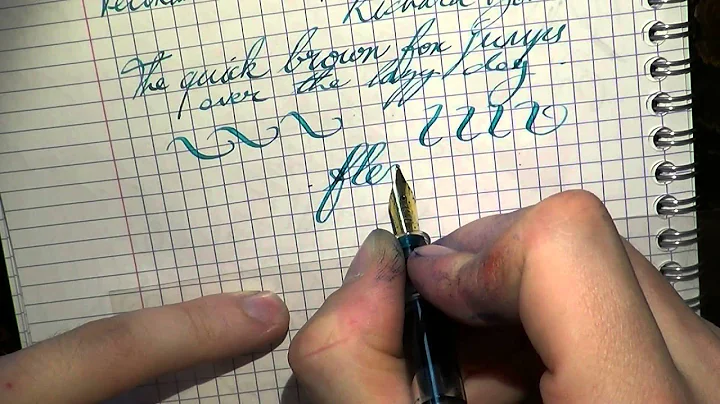 Richard
The quick brown fox jumps
over the lazy dog
fle